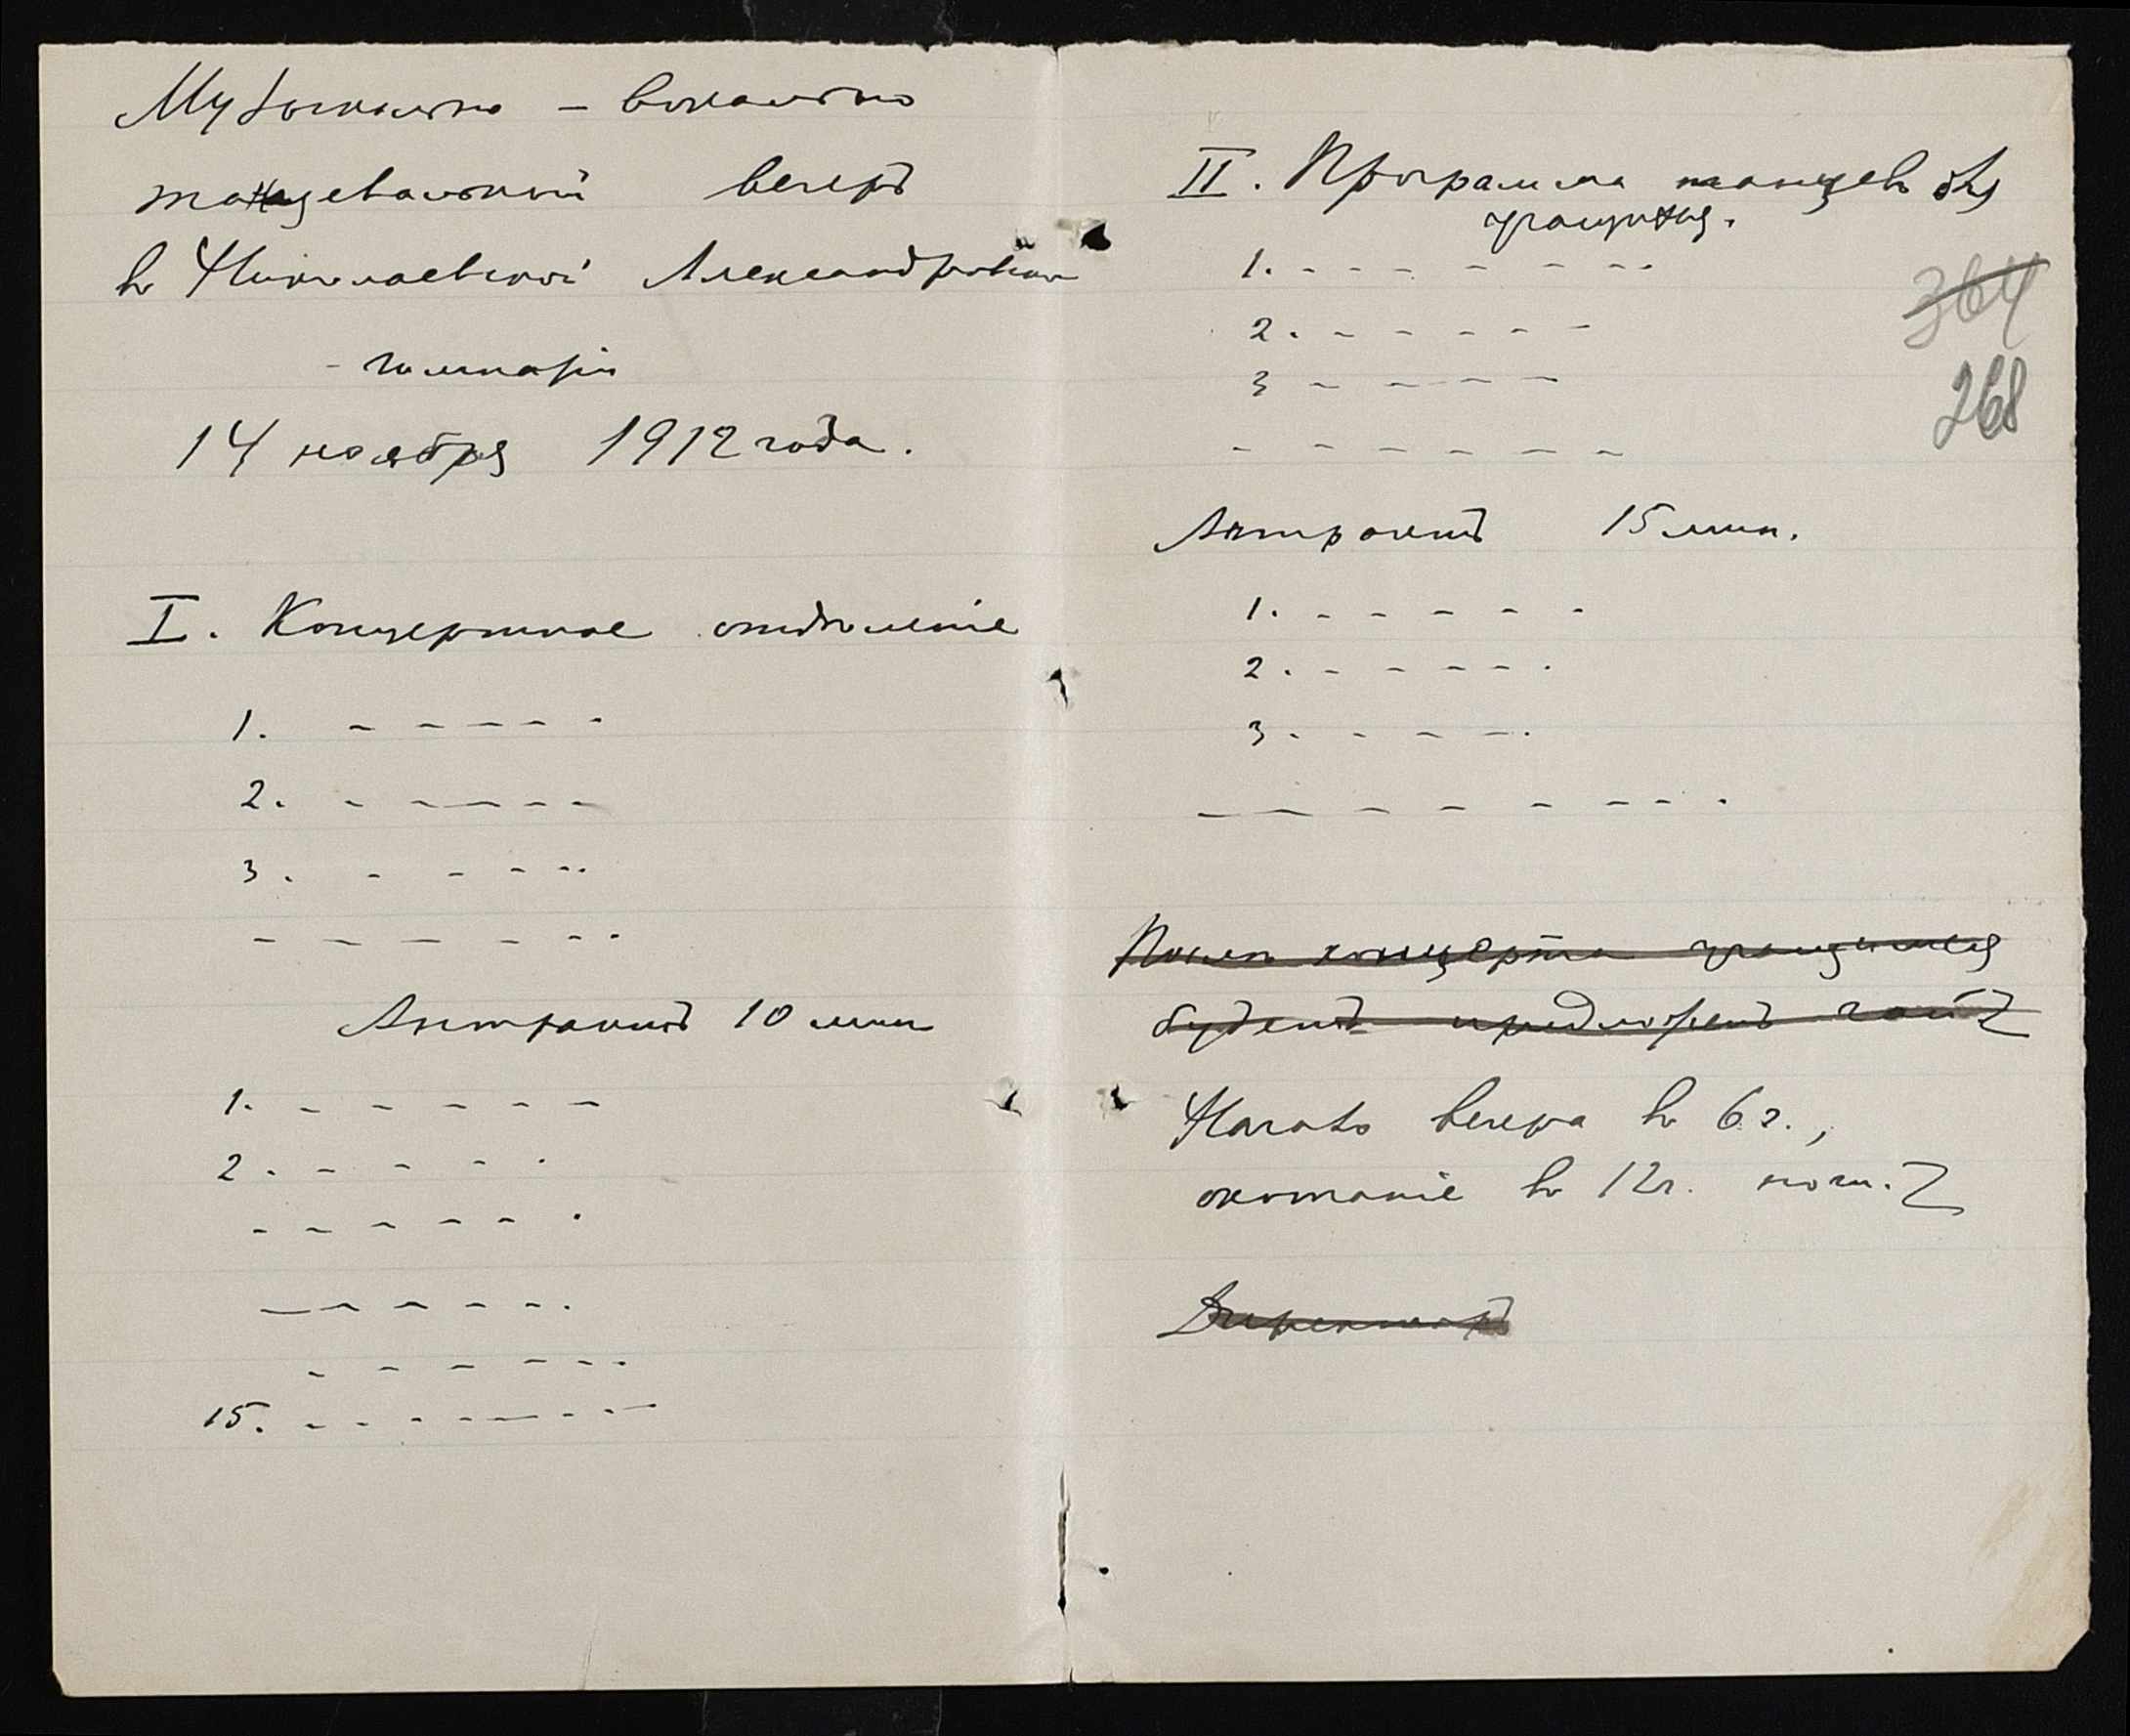 Музыкально – вокально
танцевальный вечеръ
въ Николаевской Александровской
- гимназіи
14 ноября 1912 года.
I. Концертное отдѣленіе
1. - - - - -
2. - - - - -
3. - - - - -
- - - - - -
Антрактъ 10 мин
1. - - - - -
2. - - - - -
- - - - - -
- - - - - -
- - - - - -
15. - - - - - - -
II. Программа танцевъ для
учащихся.
1. - - - - - - -
2. - - - - - -
3 - - - - -
- - - - - - -
364
268
Антрактъ 15 мин.
1. - - - - -
2. - - - - -
3. - - - - -
- - - - - - - -
Послѣ концерта учащимся
будетъ предложенъ чай
Начало вечера въ 6 ч.,
окончаніе въ 12 ч. ночи.
Директоръ